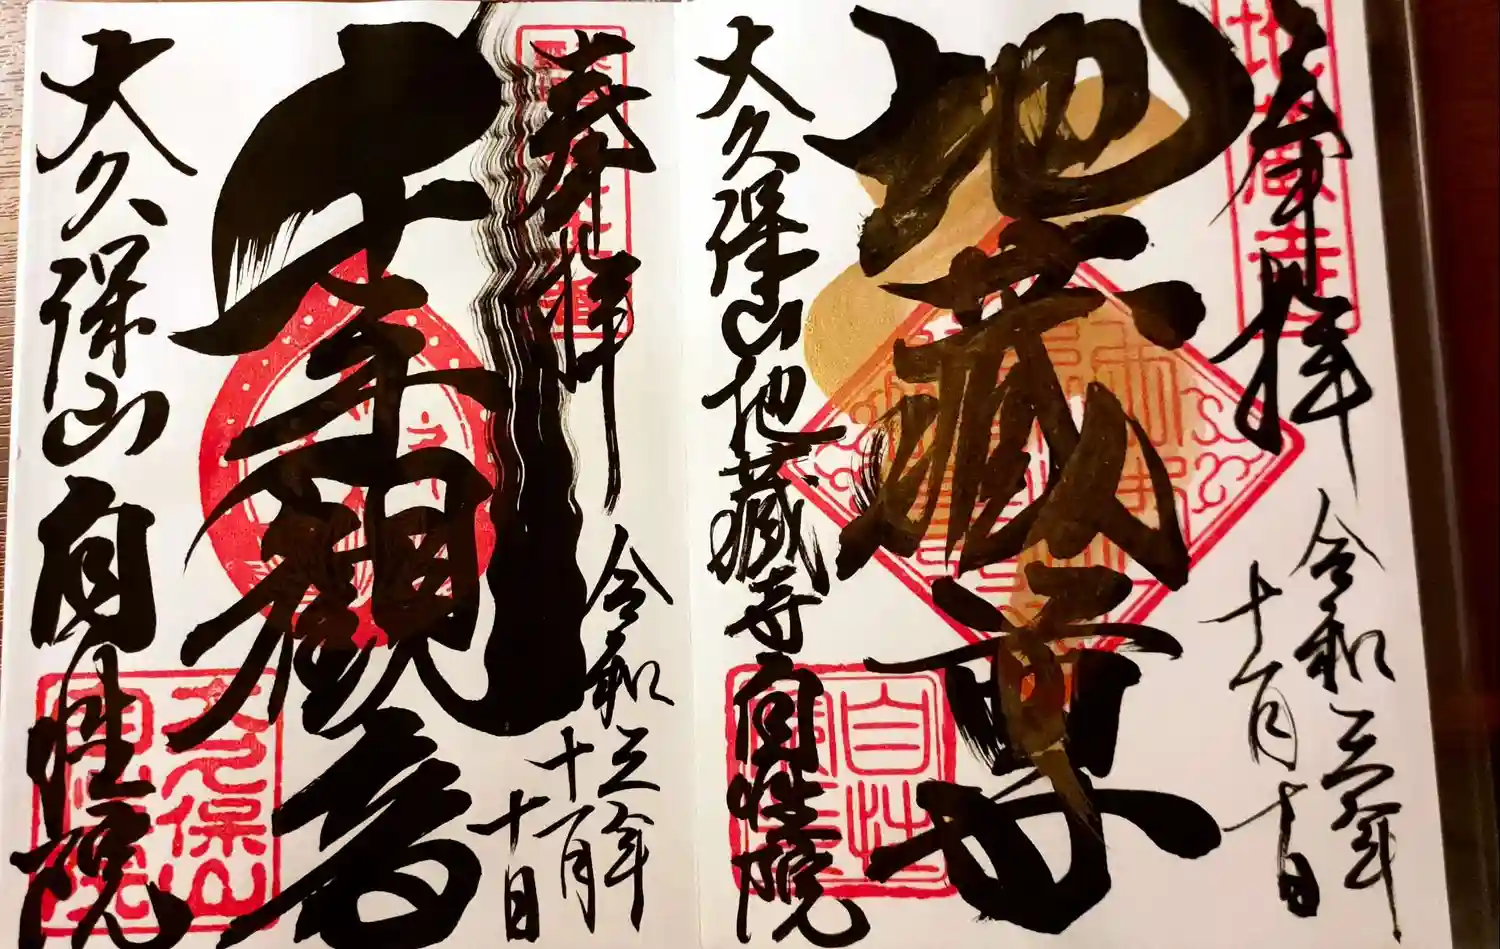 奉拝
令和三年
十一月
十日
地蔵寺
地蔵尊
大久保山地蔵寺自性院
奉拝
令和三年
十一月
十日
千手観音
大久保山自性院
大久保山